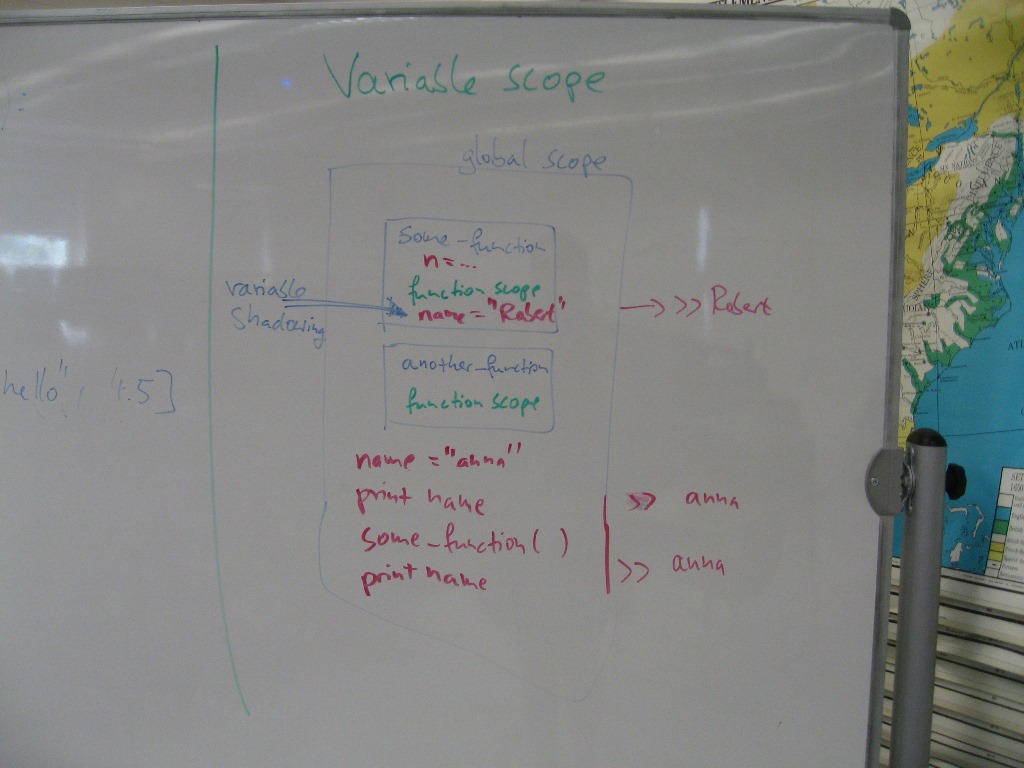 Variable scope
global scope
some_function
n=...
function scope
name = "Robert"
variable
shadowing
>>> Robert
another_function
function scope
name = "anna"
print name
>>> anna
some_function( )
print name
>> anna
hello", 4.5]